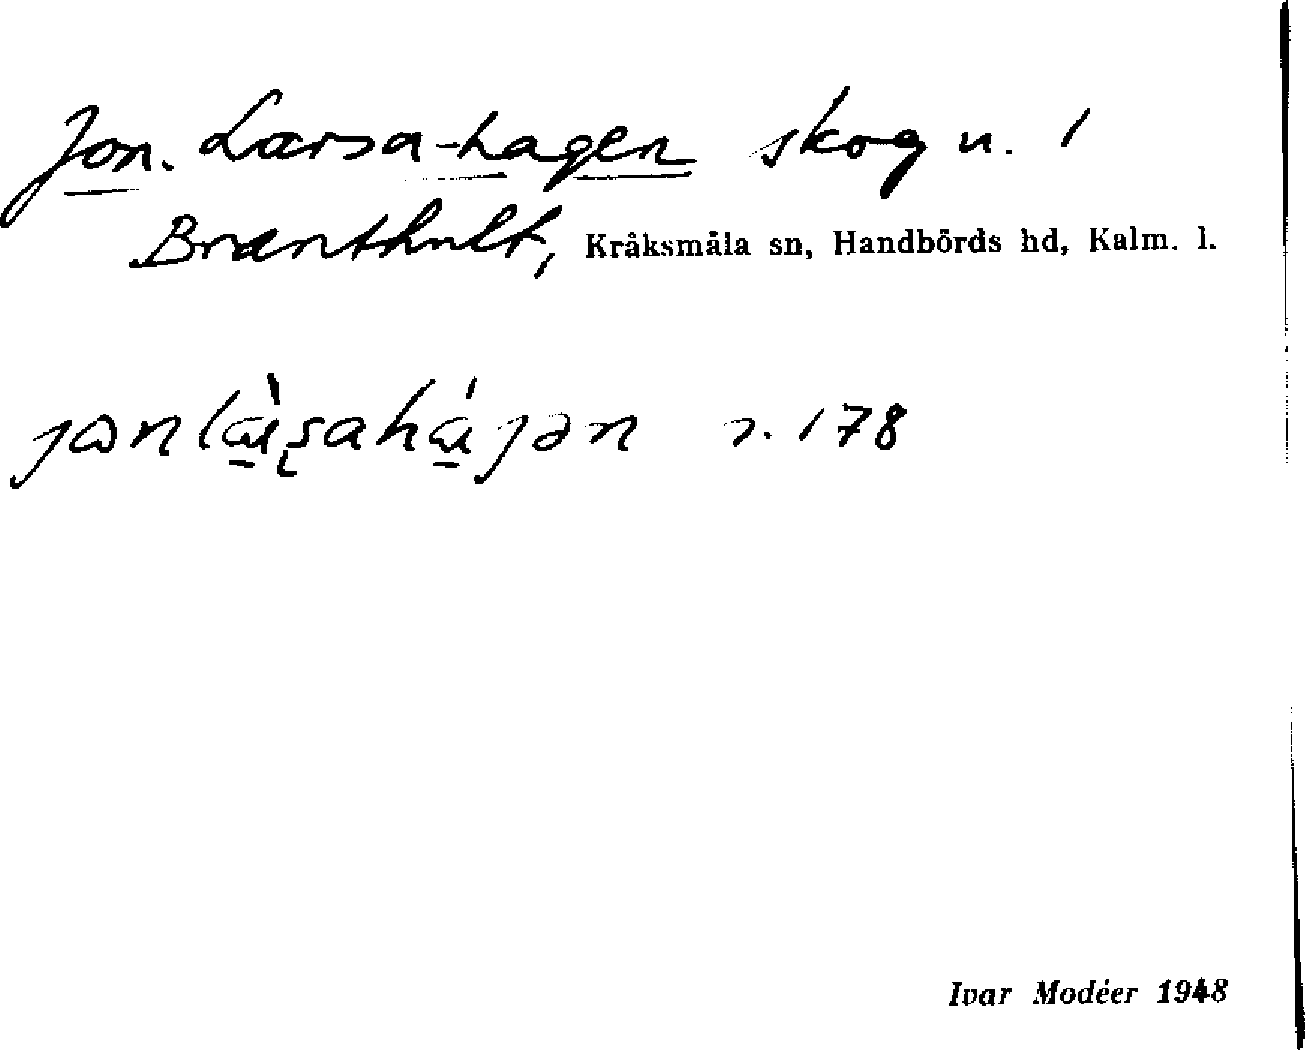 Jon. Larsa-hagen skog u. 1
Branthult, Kråksmåla sn, Handbörds hd, Kalm. l.
jɷnlàʂahájən r. 178
Ivar Modéer 1948